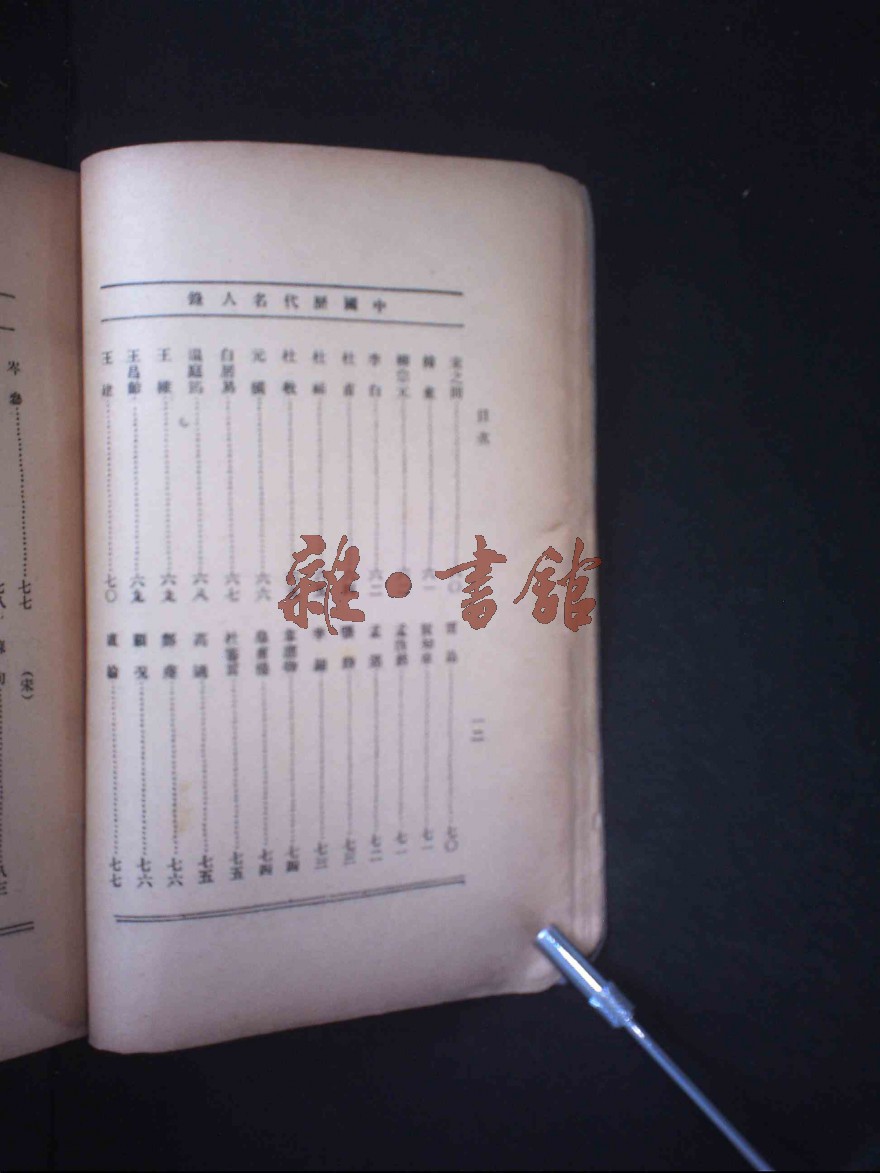 中國歷代名人錄
目次
一二
宋之問
韓愈 六一
柳宗元
李白 六二
杜甫
杜福
杜牧
元稹 六六
白居易 六七
溫庭筠 六八
王維 六九
王昌齡 六九
王建 七〇
賈島 七〇
賀知章 七一
孟浩然 七一
孟郊 七二
張 七三
李 七三
韋應物 七四
皇甫 七四
杜審言 七五
高適 七五
鄭虔 七六
顧況 七六
盧綸 七七
岑參 七七
(宋)
八三
雜·書館